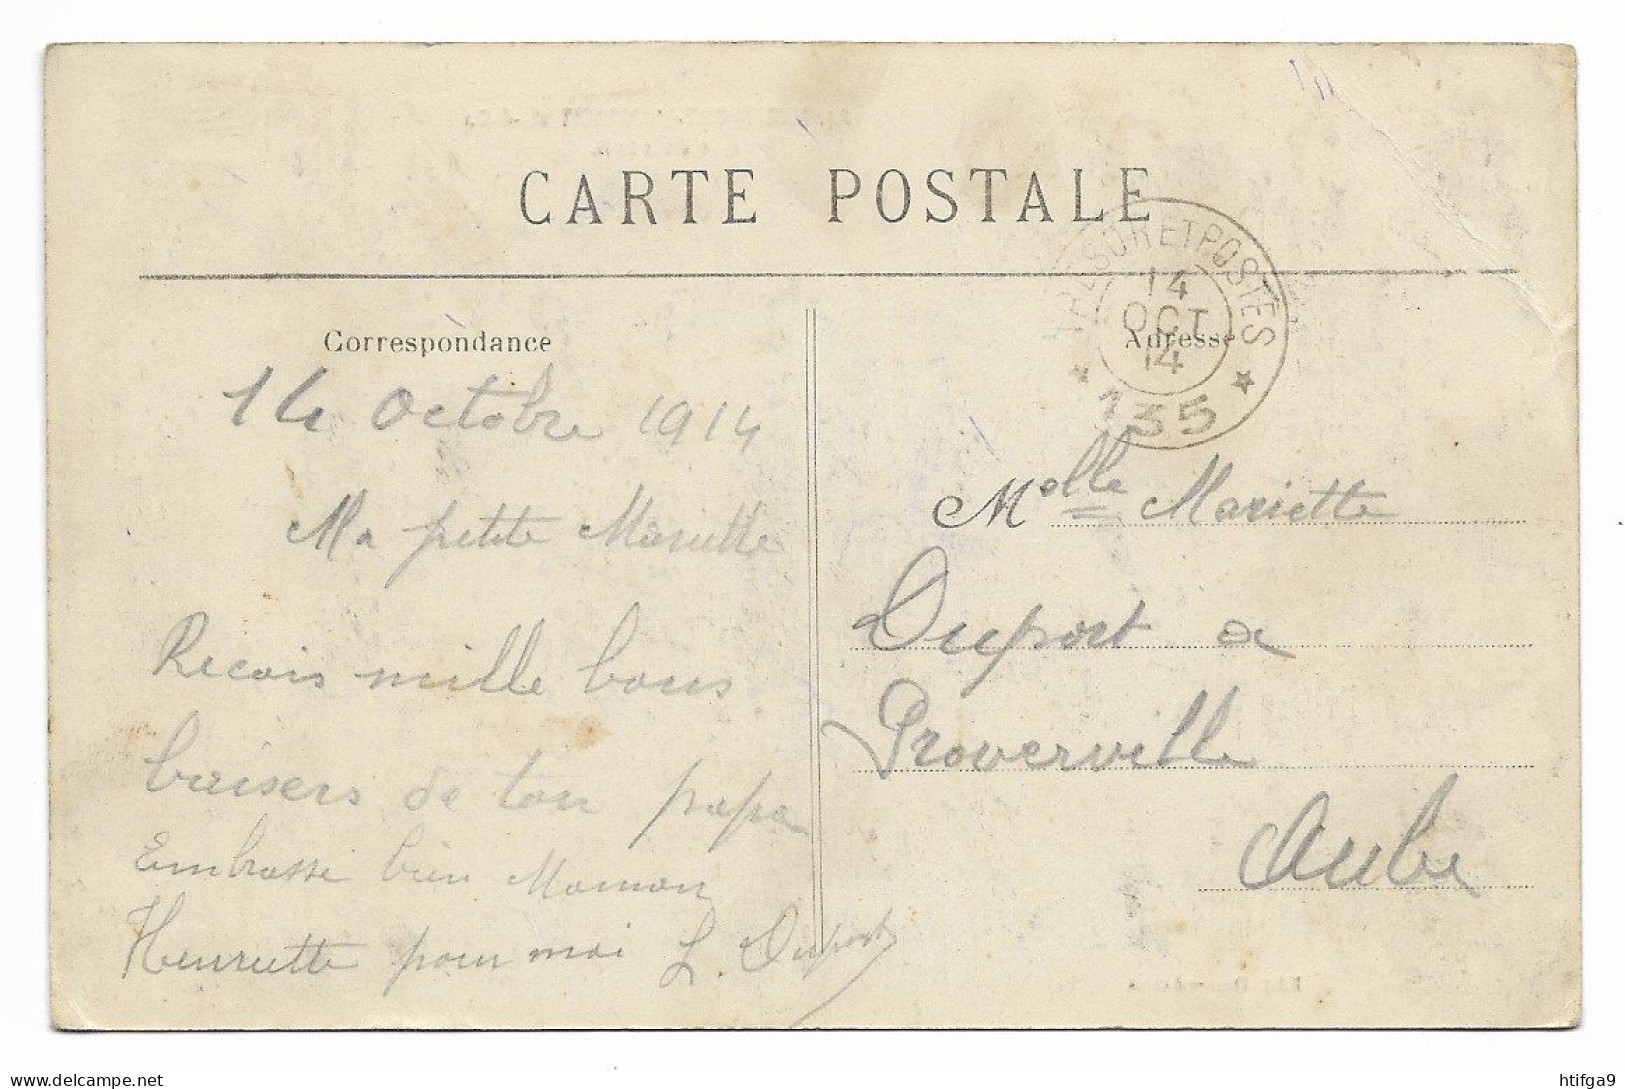 CARTE POSTALE
TRESOR ET POSTES
14
OCT
14
* 135 *
Correspondance
Adresse
14 Octobre 1914
Ma petite Mariette
Recois mille bons
baisers de ton papa
Embrasse bien Maman
Henriette pour moi L. Duport
Melle Mariette
Duport a
Proverville
Aube
www.delcampe.net
htifga9